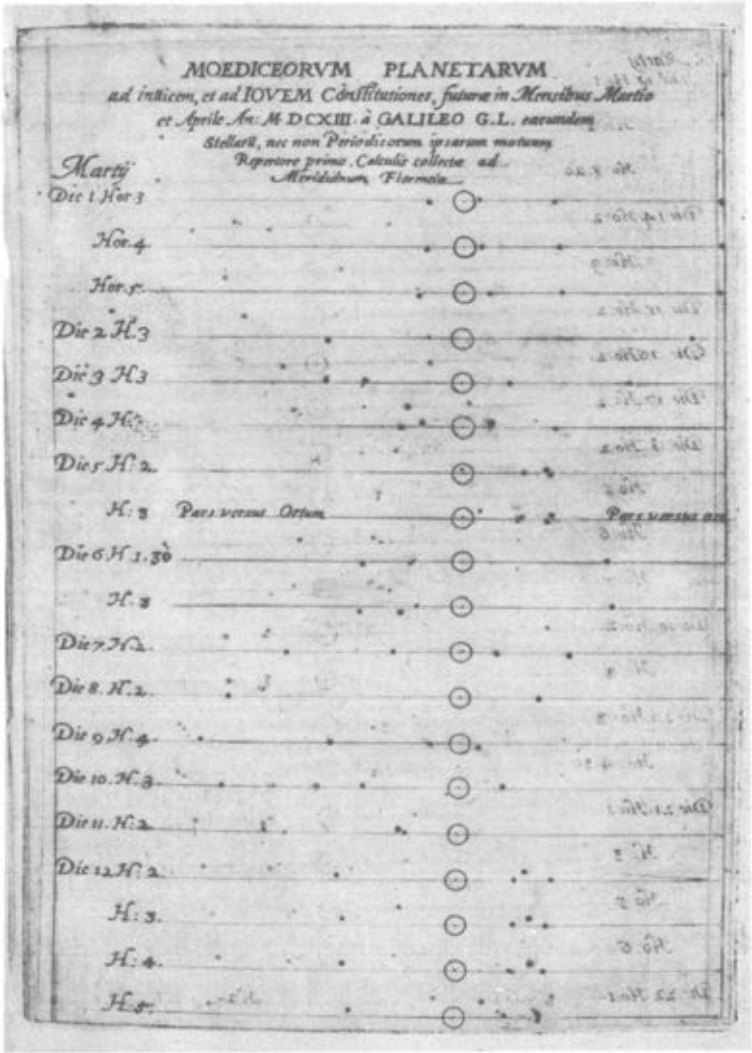 MOEDICEORVM PLANETARVM
ad inuicem, et ad IOVEM Constitutiones, futuræ in Mensibus Martio
et Aprile An: M DCXIII. à GALILEO G.L. earundem
Stellarū, nec non Periodicorum ipsarum motuum
Repertore primo. Calculis collectæ ad
Meridianum Florentiæ
Martij
Die 1 Hor 3
Hor. 4
Hor. 5
Die 2 H. 3
Die 3 H 3
Die 4 H:
Die 5 H: 2.
H: 8 Pars versus Ortum Pars versus occ
Die 6 H 1. 30
H. 8
Die 7. H. 2.
Die 8. H. 2
Die 9 H. 4
Die 10. H. 3
Die 11. H: 2
Die 12 H: 2.
H: 3.
H: 4.
H. 5